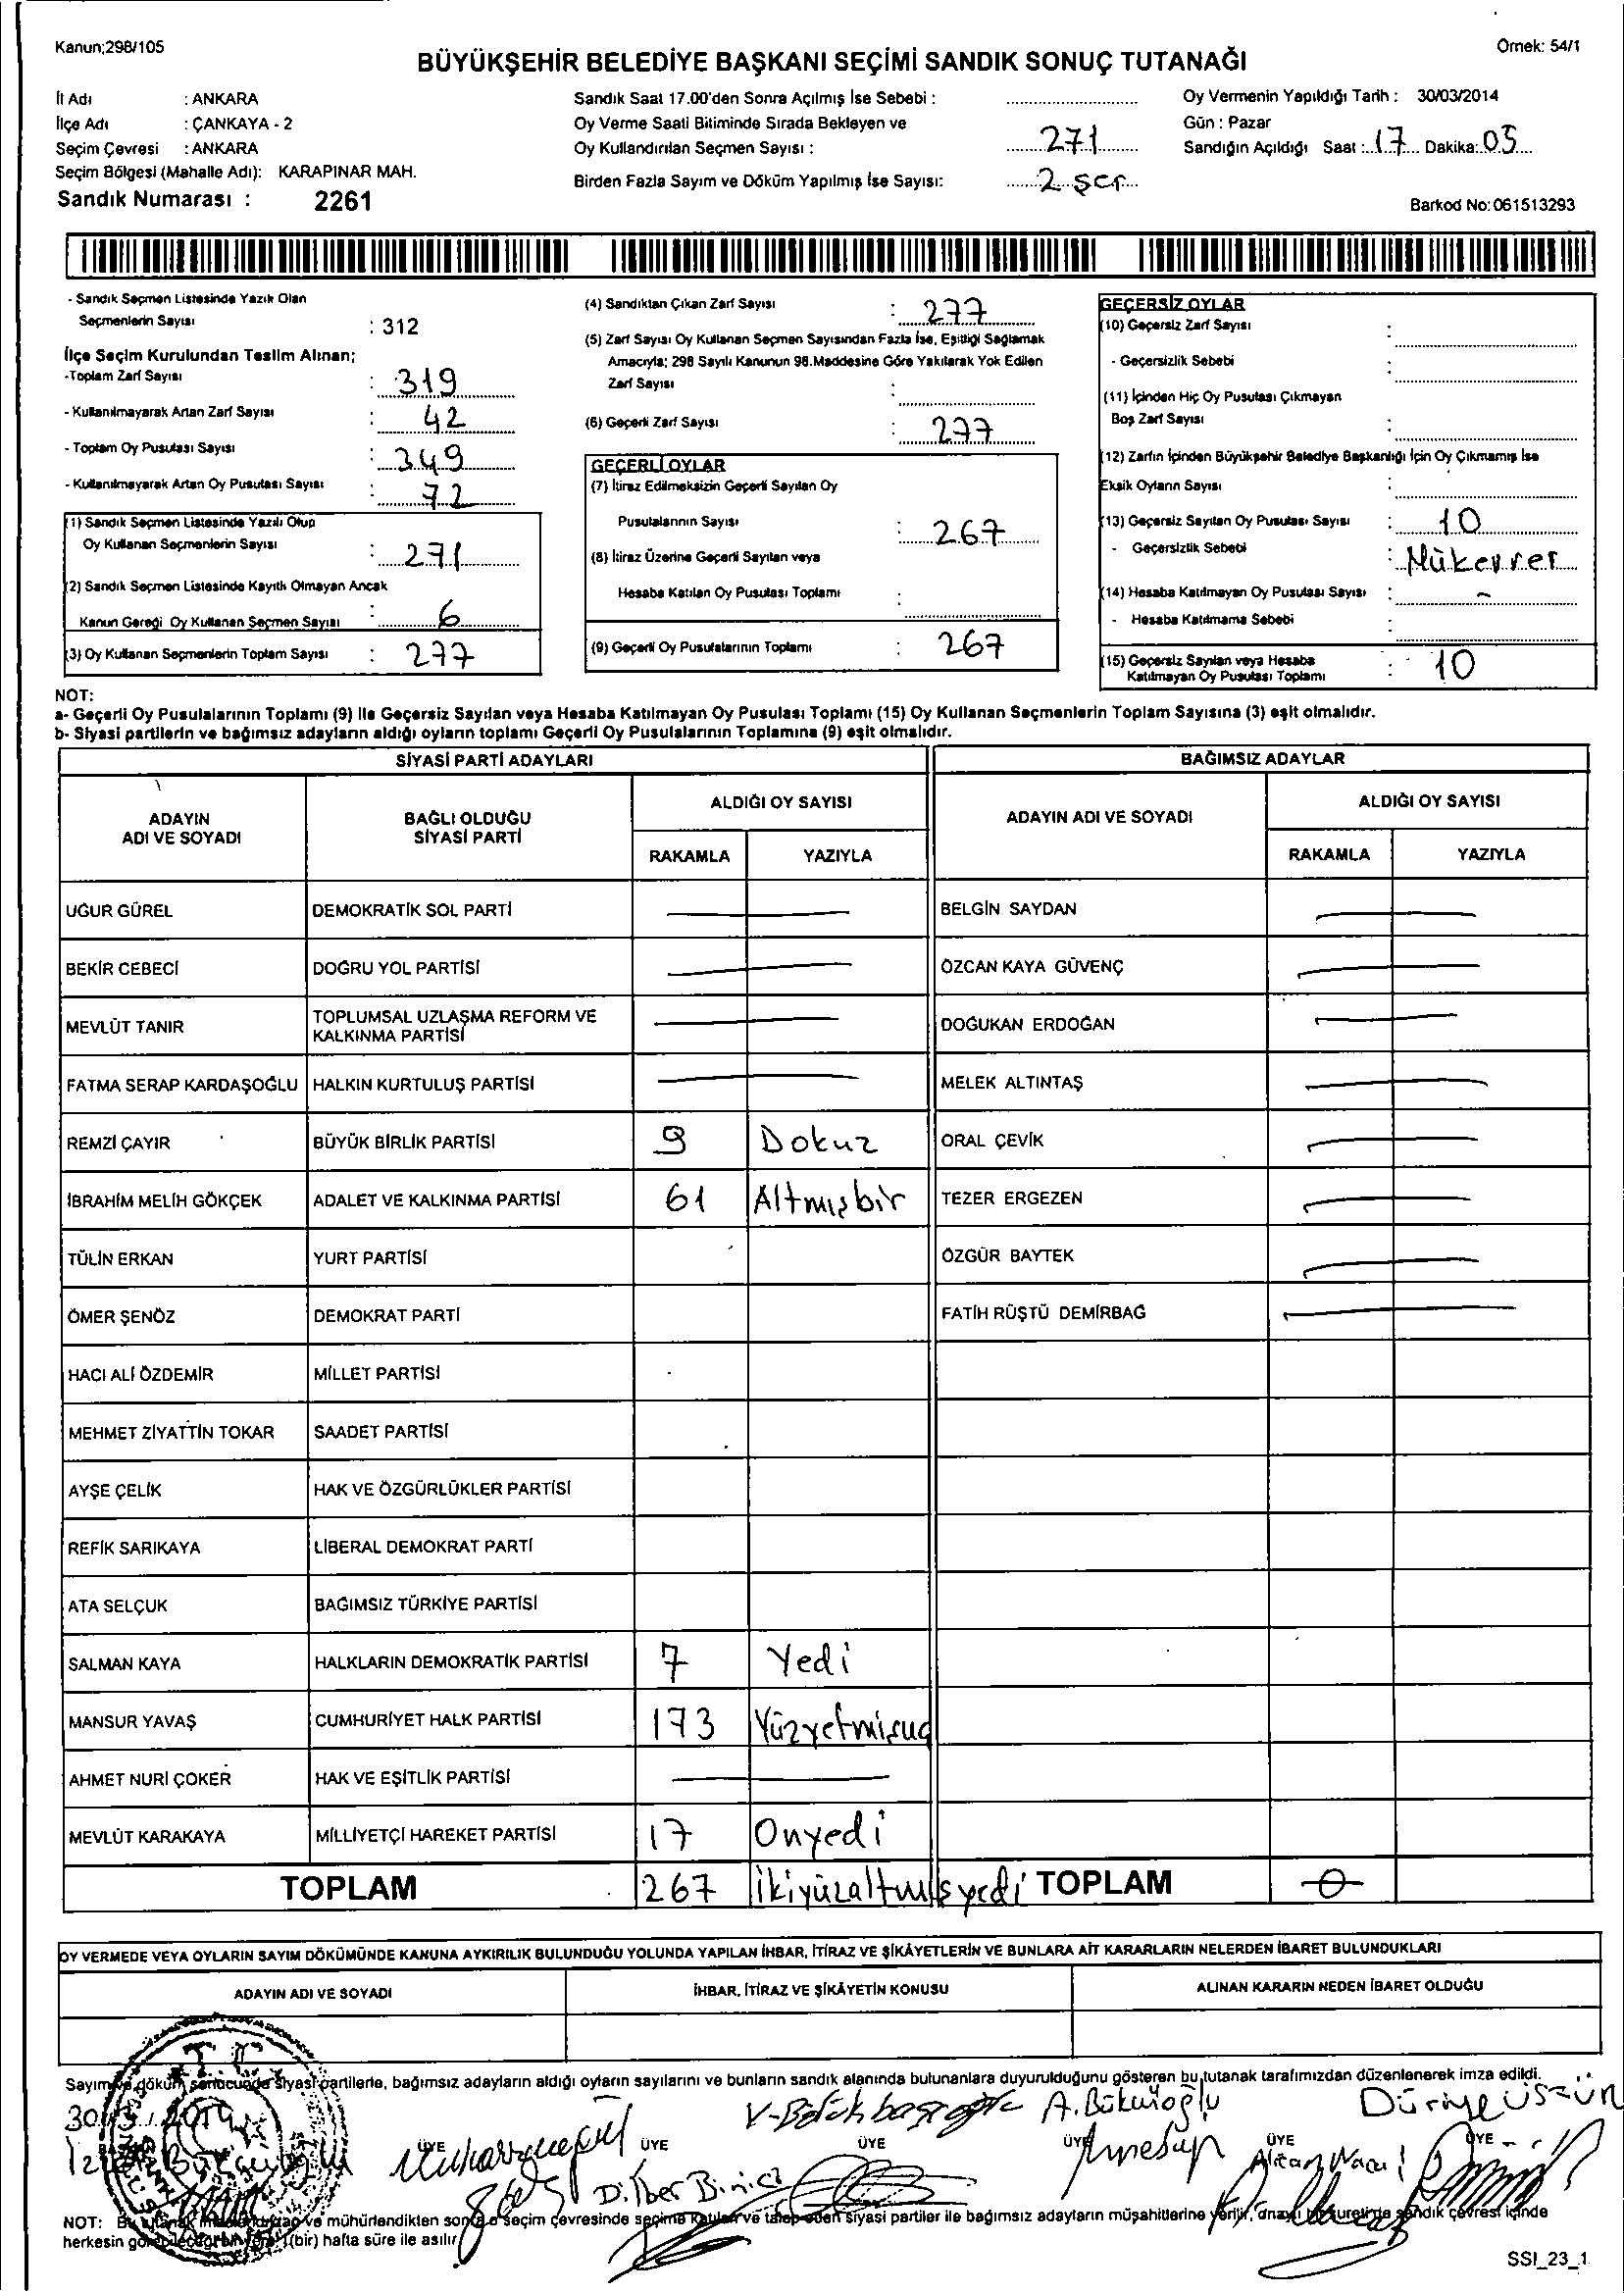 Kanun;298/105
Örnek: 54/1
BÜYÜKŞEHİR BELEDİYE BAŞKANI SEÇİMİ SANDIK SONUÇ TUTANAĞI
İl Adı : ANKARA
İlçe Adı : ÇANKAYA - 2
Seçim Çevresi : ANKARA
Seçim Bölgesi (Mahalle Adı): KARAPINAR MAH.
Sandık Numarası : 2261
Sandık Saat 17.00'den Sonra Açılmış İse Sebebi :
Oy Verme Saati Bitiminde Sırada Bekleyen ve
Oy Kullandırılan Seçmen Sayısı : 271
Birden Fazla Sayım ve Döküm Yapılmış İse Sayısı: 2 şer
Oy Vermenin Yapıldığı Tarih : 30/03/2014
Gün : Pazar
Sandığın Açıldığı Saat : 17 Dakika: 05
Barkod No:061513293
- Sandık Seçmen Listesinde Yazılı Olan
Seçmenlerin Sayısı : 312
İlçe Seçim Kurulundan Teslim Alınan;
-Toplam Zarf Sayısı : 319
- Kullanılmayarak Artan Zarf Sayısı : 42
- Toplam Oy Pusulası Sayısı : 349
- Kullanılmayarak Artan Oy Pusulası Sayısı : 72
(1) Sandık Seçmen Listesinde Yazılı Olup
Oy Kullanan Seçmenlerin Sayısı : 271
(2) Sandık Seçmen Listesinde Kayıtlı Olmayan Ancak
Kanun Gereği Oy Kullanan Seçmen Sayısı : 6
(3) Oy Kullanan Seçmenlerin Toplam Sayısı : 277
(4) Sandıktan Çıkan Zarf Sayısı : 277
(5) Zarf Sayısı Oy Kullanan Seçmen Sayısından Fazla İse, Eşitliği Sağlamak
Amacıyla; 298 Sayılı Kanunun 98.Maddesine Göre Yakılarak Yok Edilen
Zarf Sayısı :
(6) Geçerli Zarf Sayısı : 277
GEÇERLİ OYLAR
(7) İtiraz Edilmeksizin Geçerli Sayılan Oy
Pusulalarının Sayısı : 267
(8) İtiraz Üzerine Geçerli Sayılan veya
Hesaba Katılan Oy Pusulası Toplamı :
(9) Geçerli Oy Pusulalarının Toplamı : 267
GEÇERSİZ OYLAR
(10) Geçersiz Zarf Sayısı :
- Geçersizlik Sebebi :
(11) İçinden Hiç Oy Pusulası Çıkmayan
Boş Zarf Sayısı :
(12) Zarfın İçinden Büyükşehir Belediye Başkanlığı İçin Oy Çıkmamış İse
Eksik Oyların Sayısı :
(13) Geçersiz Sayılan Oy Pusulası Sayısı : 10
- Geçersizlik Sebebi : Mükerrer
(14) Hesaba Katılmayan Oy Pusulası Sayısı : -
- Hesaba Katılmama Sebebi :
(15) Geçersiz Sayılan veya Hesaba
Katılmayan Oy Pusulası Toplamı : 10
NOT:
a- Geçerli Oy Pusulalarının Toplamı (9) İle Geçersiz Sayılan veya Hesaba Katılmayan Oy Pusulası Toplamı (15) Oy Kullanan Seçmenlerin Toplam Sayısına (3) eşit olmalıdır.
b- Siyasi partilerin ve bağımsız adayların aldığı oyların toplamı Geçerli Oy Pusulalarının Toplamına (9) eşit olmalıdır.
SİYASİ PARTİ ADAYLARI BAĞIMSIZ ADAYLAR
ADAYIN
ADI VE SOYADI
BAĞLI OLDUĞU
SİYASİ PARTİ
ALDIĞI OY SAYISI
RAKAMLA YAZIYLA
ADAYIN ADI VE SOYADI
ALDIĞI OY SAYISI
RAKAMLA YAZIYLA
UĞUR GÜREL DEMOKRATİK SOL PARTİ BELGİN SAYDAN
BEKİR CEBECİ DOĞRU YOL PARTİSİ ÖZCAN KAYA GÜVENÇ
MEVLÜT TANIR TOPLUMSAL UZLAŞMA REFORM VE
KALKINMA PARTİSİ DOĞUKAN ERDOĞAN
FATMA SERAP KARDAŞOĞLU HALKIN KURTULUŞ PARTİSİ MELEK ALTINTAŞ
REMZİ ÇAYIR BÜYÜK BİRLİK PARTİSİ 9 Dokuz ORAL ÇEVİK
İBRAHİM MELİH GÖKÇEK ADALET VE KALKINMA PARTİSİ 61 Altmışbir TEZER ERGEZEN
TÜLİN ERKAN YURT PARTİSİ ÖZGÜR BAYTEK
ÖMER ŞENÖZ DEMOKRAT PARTİ FATİH RÜŞTÜ DEMİRBAĞ
HACI ALİ ÖZDEMİR MİLLET PARTİSİ
MEHMET ZİYATTİN TOKAR SAADET PARTİSİ
AYŞE ÇELİK HAK VE ÖZGÜRLÜKLER PARTİSİ
REFİK SARIKAYA LİBERAL DEMOKRAT PARTİ
ATA SELÇUK BAĞIMSIZ TÜRKİYE PARTİSİ
SALMAN KAYA HALKLARIN DEMOKRATİK PARTİSİ 7 Yedi
MANSUR YAVAŞ CUMHURİYET HALK PARTİSİ 173 Yüzyetmişuç
AHMET NURİ ÇOKER HAK VE EŞİTLİK PARTİSİ
MEVLÜT KARAKAYA MİLLİYETÇİ HAREKET PARTİSİ 17 Onyedi
TOPLAM 267 İkiyüzaltmışyedi TOPLAM 0
OY VERMEDE VEYA OYLARIN SAYIM DÖKÜMÜNDE KANUNA AYKIRILIK BULUNDUĞU YOLUNDA YAPILAN İHBAR, İTİRAZ VE ŞİKÂYETLERİN VE BUNLARA AİT KARARLARIN NELERDEN İBARET BULUNDUKLARI
ADAYIN ADI VE SOYADI İHBAR, İTİRAZ VE ŞİKÂYETİN KONUSU ALINAN KARARIN NEDEN İBARET OLDUĞU
T.C.
Sayım ve döküm sonucunda siyasi partilerle, bağımsız adayların aldığı oyların sayılarını ve bunların sandık alanında bulunanlara duyurulduğunu gösteren bu tutanak tarafımızdan düzenlenerek imza edildi.
A.Büküoğlu Düriye Üstün
ÜYE ÜYE ÜYE ÜYE ÜYE ÜYE
Dilber Binici
NOT: Bu tutanak ve mühürlendikten sonra seçim çevresinde seçime katılan ve talep eden siyasi partiler ile bağımsız adayların müşahitlerine verilir, sandık çevresi içinde
herkesin (bir) hafta süre ile asılır
SSI_23_1